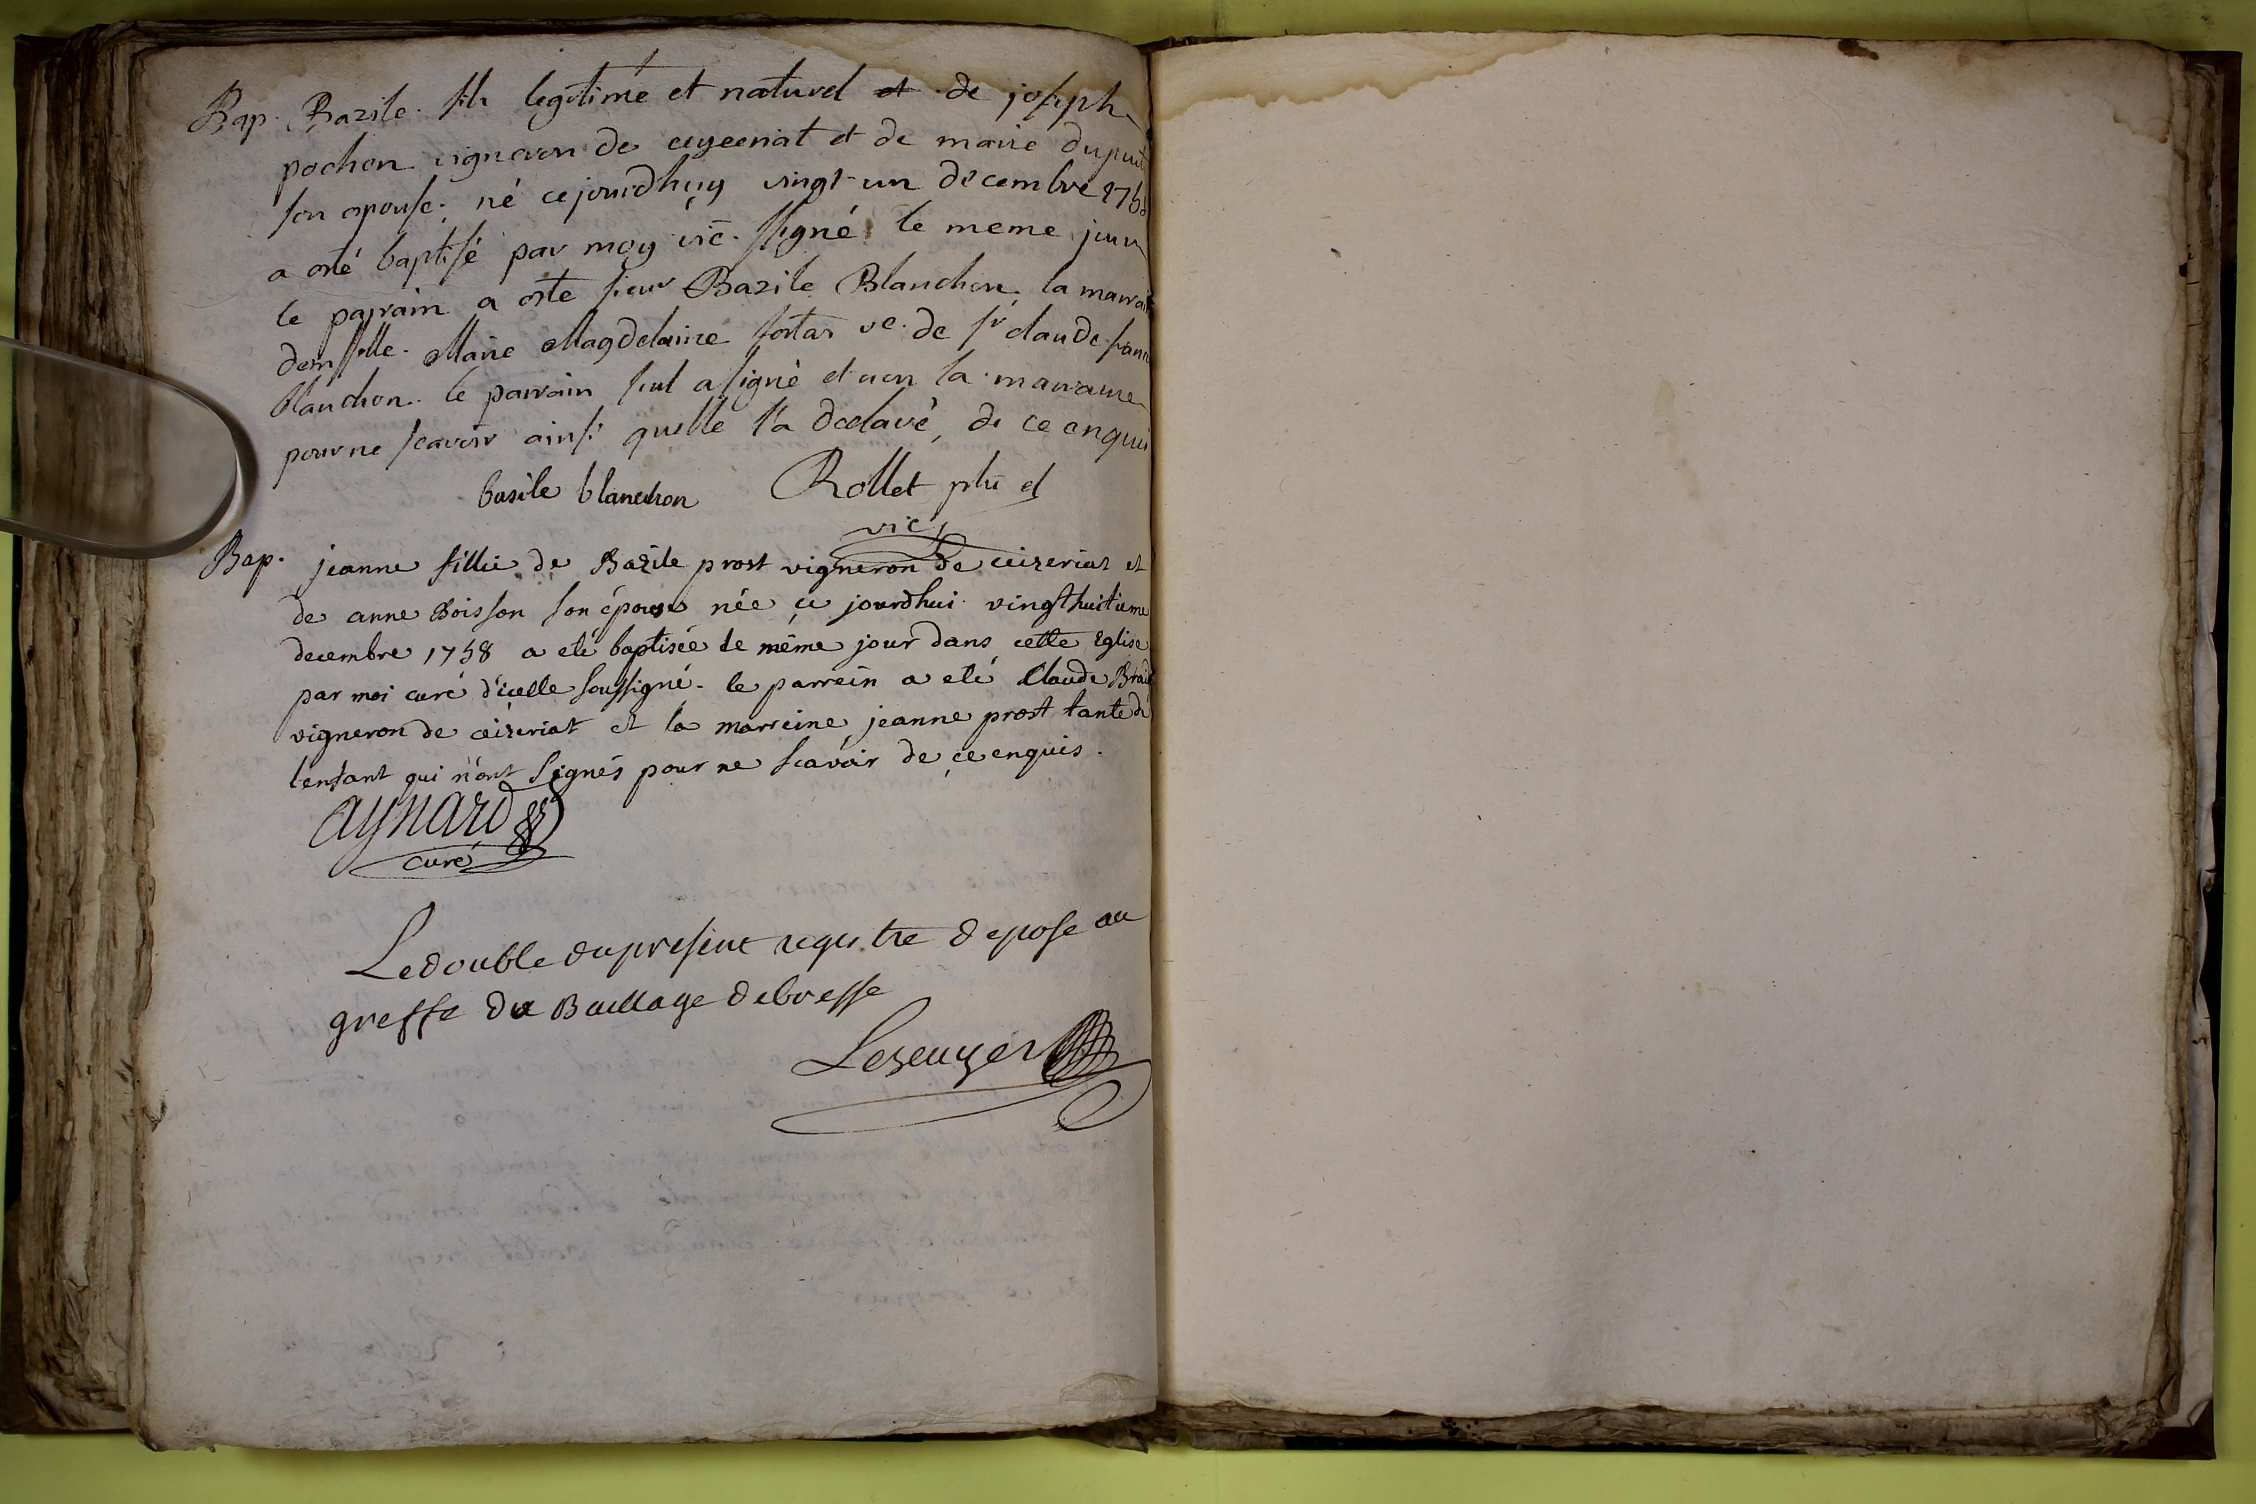 Bap. Bazile fils legitime et naturel et de joseph
pochon vigneron de ceyzeriat et de marie dupuit
son epouse, né cejourdhuy vingt-un decembre 1758
a eté baptisé par moy vic. ssigné le meme jour
le parrain a este sieur Bazile Blanchon, la marraine
demsselle Marie Magdelaine ve. de sr claude
blanchon. le parrain seul a signé et non la marraine
pour ne scavoir ainsi quelle l'a declaré, de ce enquis
basile blanchon Rollet ptre et
vic
Bap. jeanne fillie de Bazile prost vigneron de ceizeriat et
de anne Boisson son épouse née ce jourdhui vingthuitieme
decembre 1758 a eté baptisée le même jour dans cette Eglise
par moi curé d'icelle soussigné. le parrein a eté Claude
vigneron de ceizeriat et la marreine jeanne prost tante de
lenfant qui n'ont signés pour ne scavoir de ce enquis.
aynard
curé
Le double du present registre depose au
greffe du Baillage de bresse